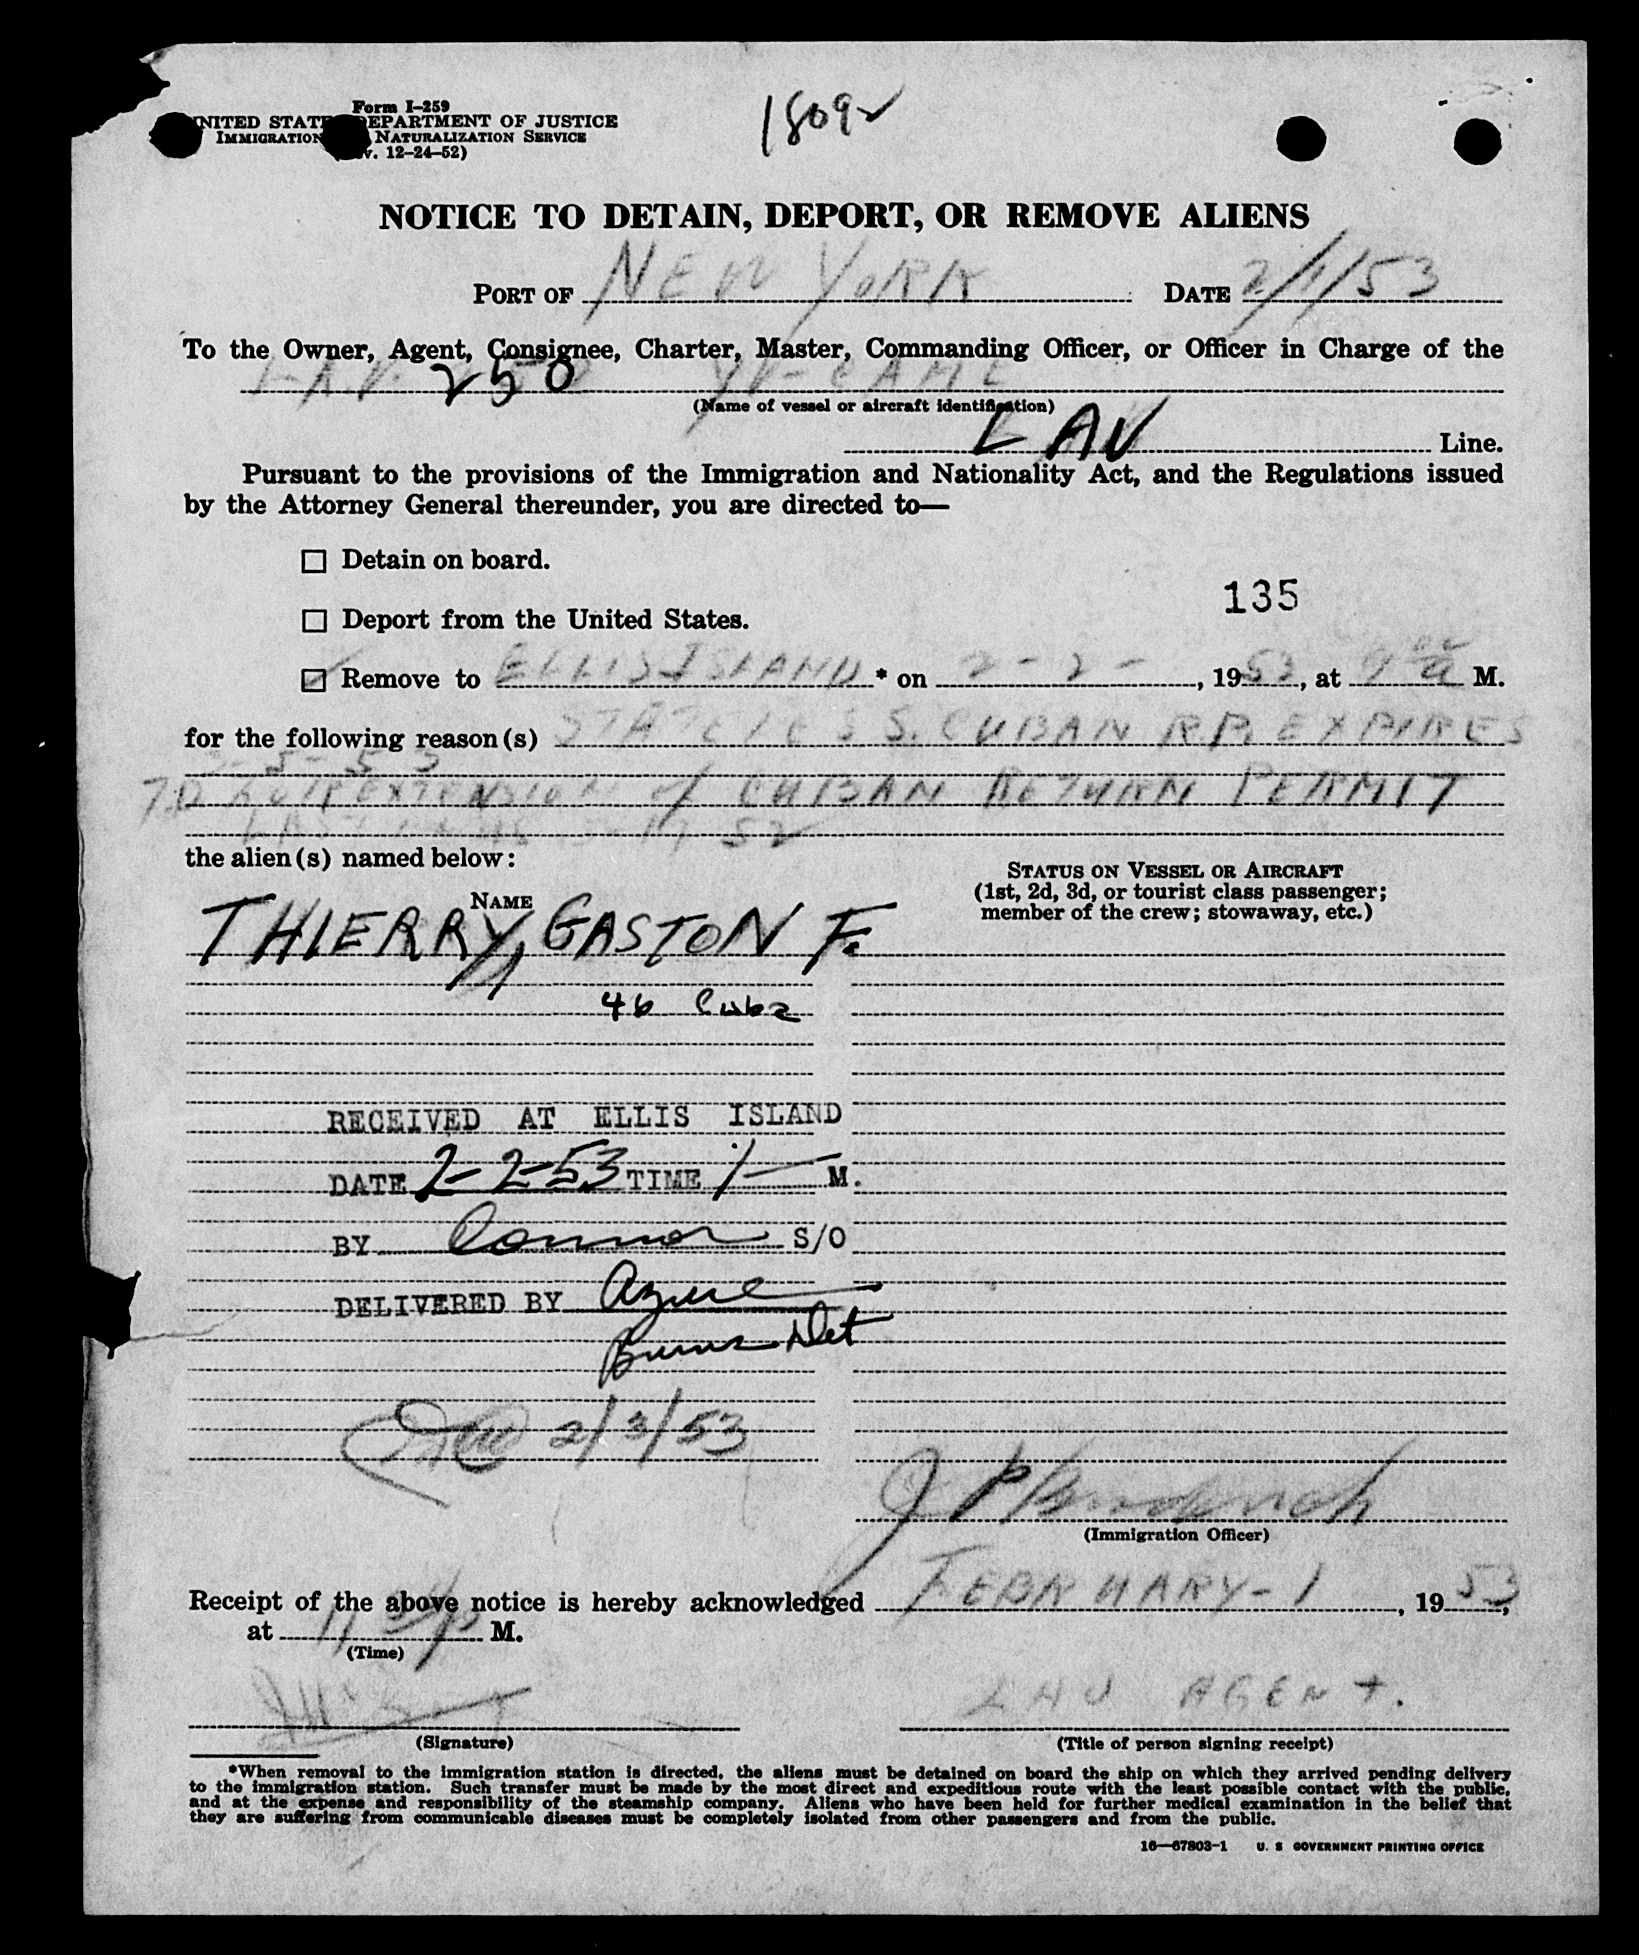 Form I-259
UNITED STATES DEPARTMENT OF JUSTICE
IMMIGRATION NATURALIZATION SERVICE
v. 12-24-52)
1809
NOTICE TO DETAIN, DEPORT, OR REMOVE ALIENS
PORT OF NEW YORK DATE 2/1/53
To the Owner, Agent, Consignee, Charter, Master, Commanding Officer, or Officer in Charge of the
L.A.V. 250 YV-CAME
(Name of vessel or aircraft identification)
LAV Line.
Pursuant to the provisions of the Immigration and Nationality Act, and the Regulations issued
by the Attorney General thereunder, you are directed to—
☐ Detain on board.
135
☐ Deport from the United States.
☑ Remove to ELLIS ISLAND * on 2-2-, 1953, at 9 00 a M.
for the following reason(s) STATELESS. CUBAN R.P. EXPIRES
3-5-53
EXTENSION of CUBAN RETURN PERMIT
52
the alien(s) named below:
NAME
STATUS ON VESSEL OR AIRCRAFT
(1st, 2d, 3d, or tourist class passenger;
member of the crew; stowaway, etc.)
THIERRY, GASTON F.
46 Cuba
RECEIVED AT ELLIS ISLAND
DATE 2-2-53 TIME 1— M.
BY Connor S/O
DELIVERED BY
Burns Det
2/3/53
J P Broderick
(Immigration Officer)
Receipt of the above notice is hereby acknowledged FEBRUARY-1, 1953,
at 11 P M.
(Time)
LAV AGENT.
(Signature) (Title of person signing receipt)
*When removal to the immigration station is directed, the aliens must be detained on board the ship on which they arrived pending delivery
to the immigration station. Such transfer must be made by the most direct and expeditious route with the least possible contact with the public,
and at the expense and responsibility of the steamship company. Aliens who have been held for further medical examination in the belief that
they are suffering from communicable diseases must be completely isolated from other passengers and from the public.
16—67803-1 U. S GOVERNMENT PRINTING OFFICE